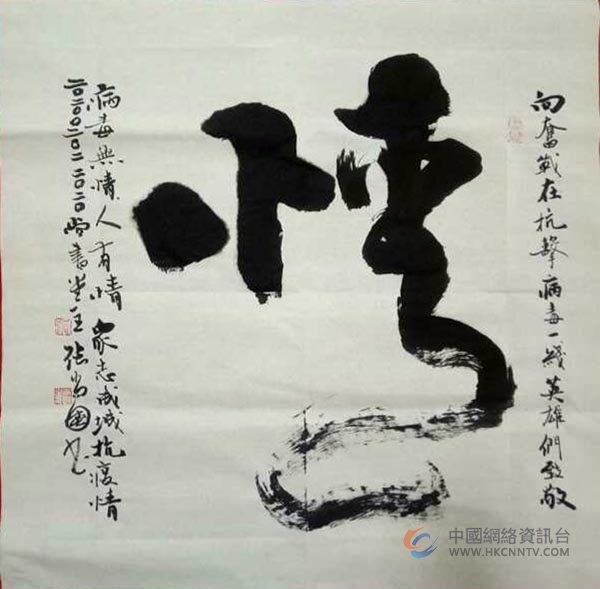 向奮戰在抗擊病毒一綫英雄們致敬
病毒無情人有情眾志成城抗疫情
尚書堂主張尚國书
中國網絡資訊台
WWW.HKCNNTV.COM